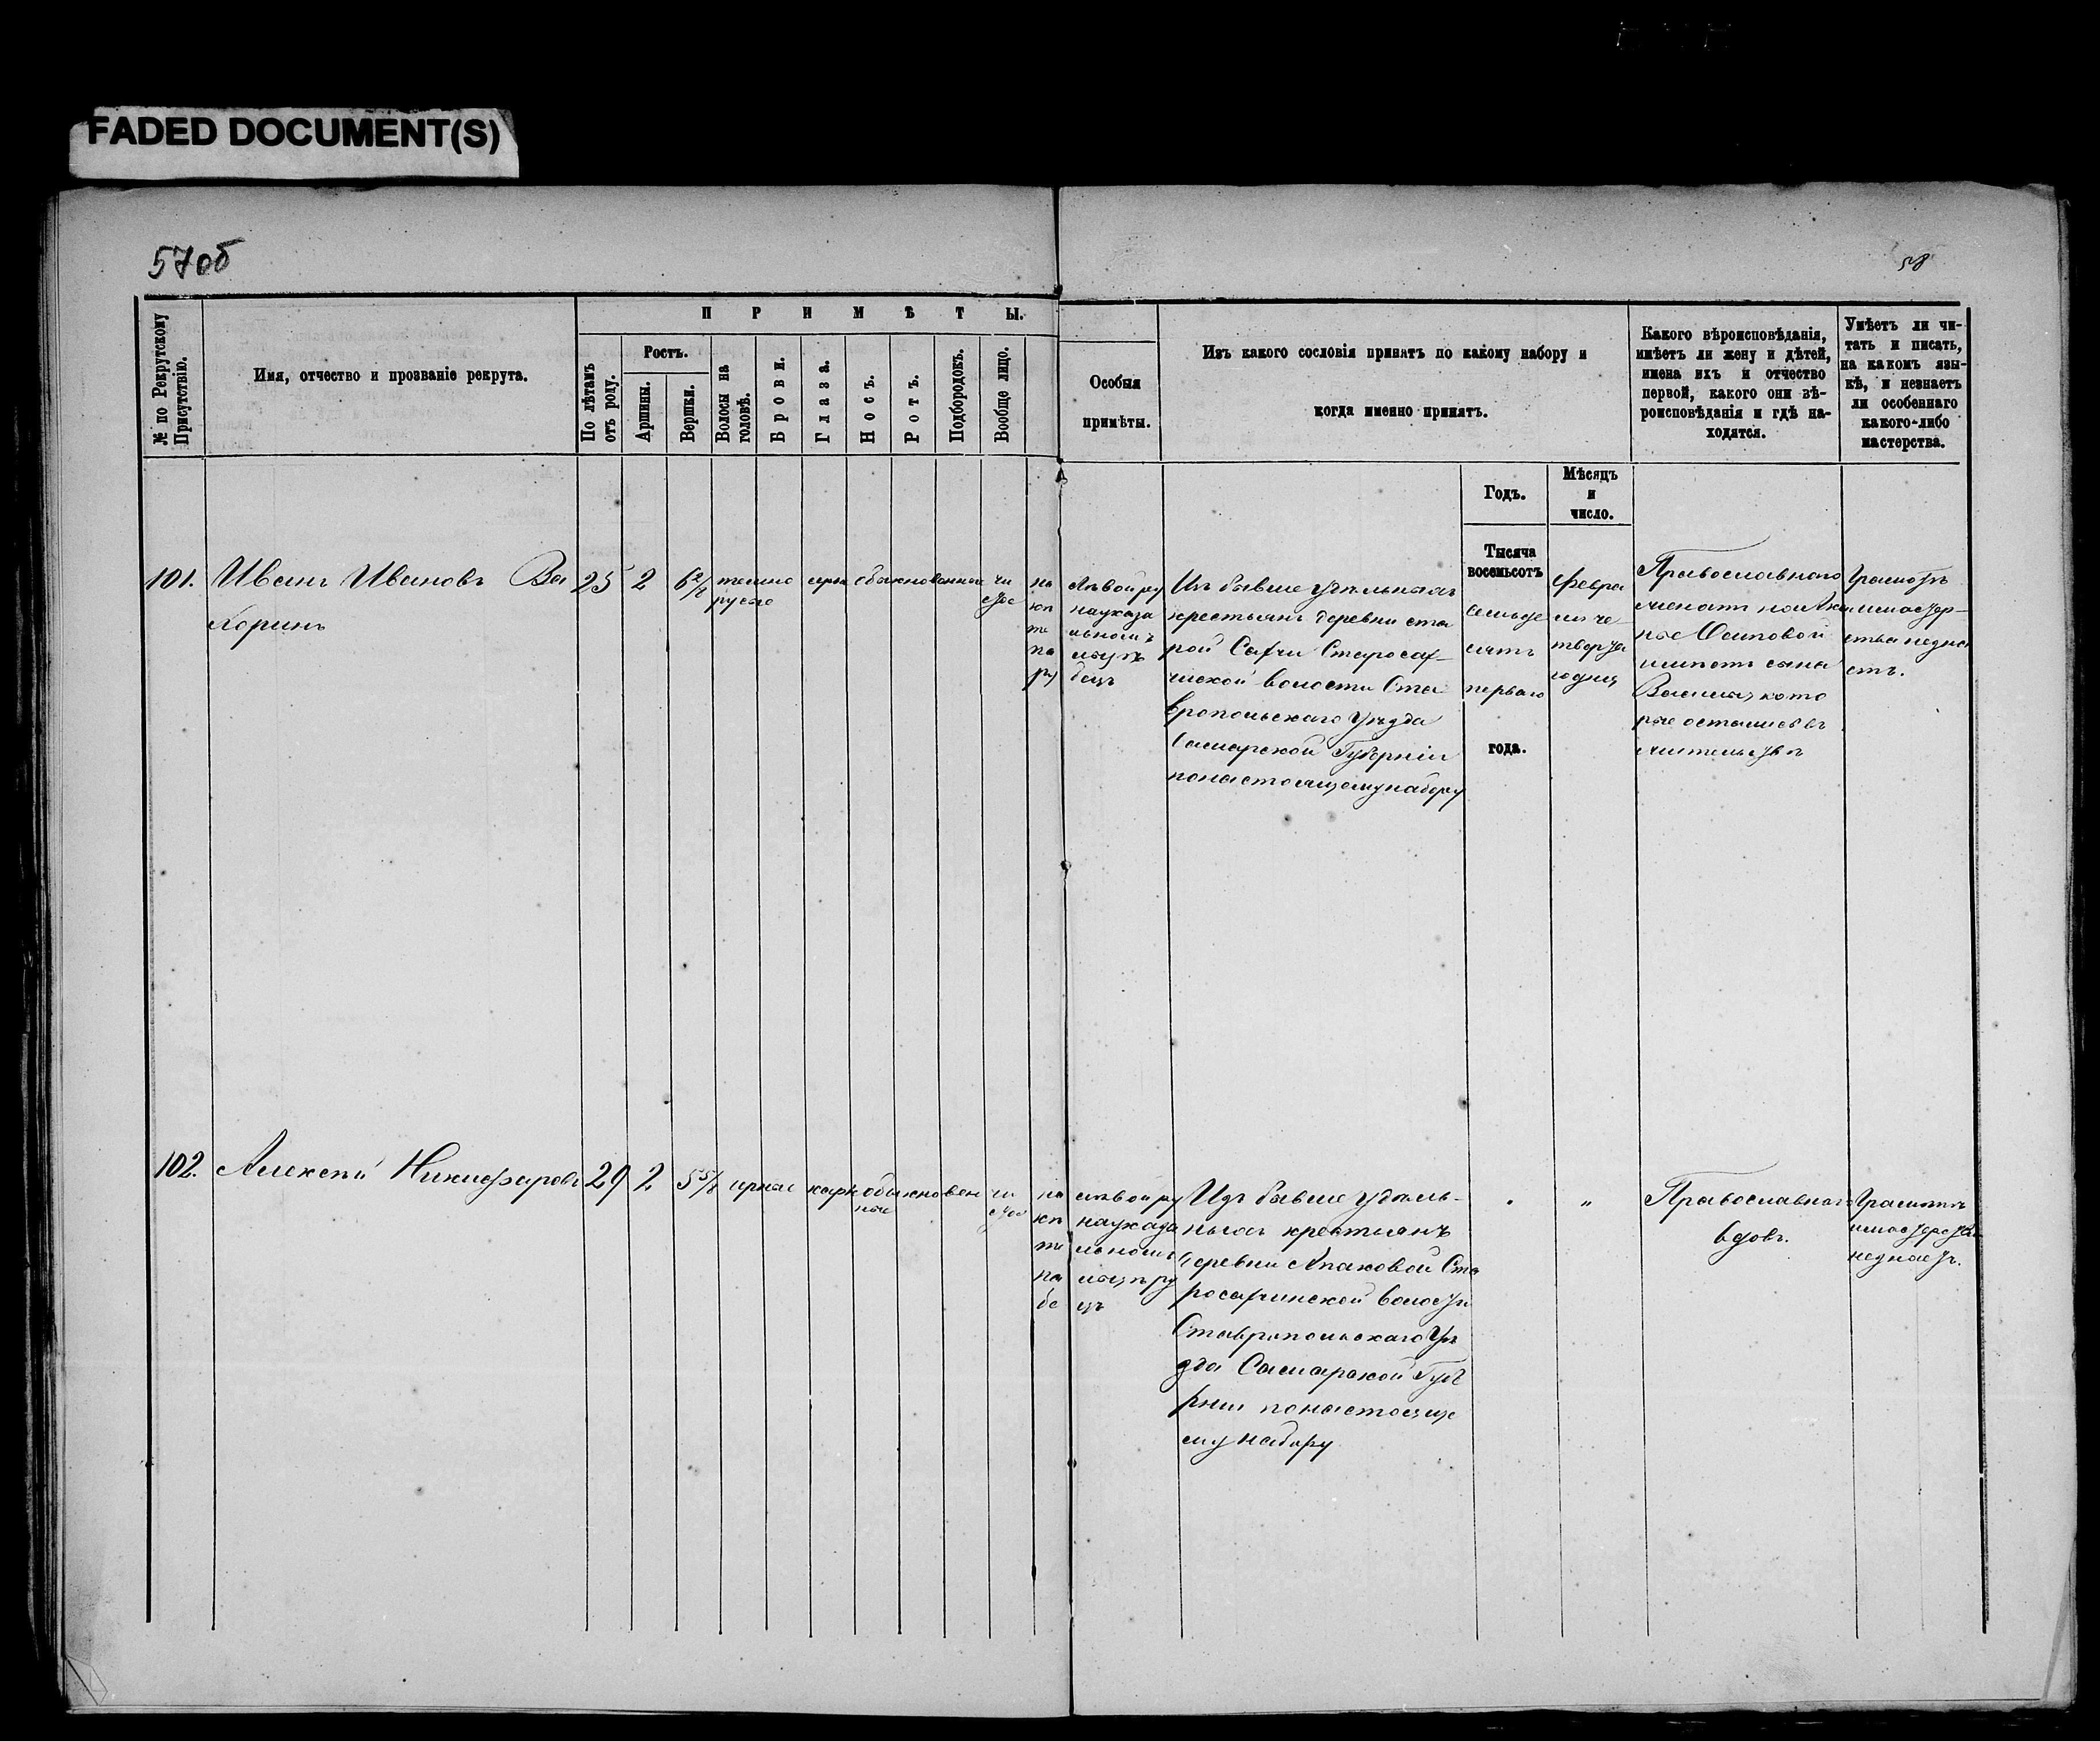 FADED DOCUMENT(S)
57об
58
№ по Рекрутскому Присутствію.
Имя, отчество и прозваніе рекрута.
ПРИМѢТЫ.
По лѣтамъ отъ роду.
Ростъ.
Аршины.
Вершки.
Волосы на головѣ.
Брови.
Глаза.
Носъ.
Ротъ.
Подбородокъ.
Вообще лицо.
Особыя
примѣты.
Изъ какого сословія принятъ по какому набору и
когда именно принятъ.
Какого вѣроисповѣданія,
имѣетъ ли жену и дѣтей,
имена ихъ и отчество
первой, какого они вѣ-
роисповѣданія и гдѣ на-
ходятся.
Умѣетъ ли чи-
тать и писать,
на какомъ язы-
кѣ, и незнаетъ
ли особеннаго
какого-либо
мастерства.
Годъ.
Мѣсяцъ
и
число.
101.
Иванъ Ивановъ Ва
хоринъ
25
2
6 2/8
темно
русые
обыкновенные
чи
стое
на
лѣвой ру
на указа
Изъ бывше удѣльныхъ
крестьянъ деревни ста
рой
волости Ста
вропольскаго Уѣзда
Самарской Губерніи
понастоящему набору
Тысяча
восемьсотъ
семьде
сятъ
перваго
года.
Февра
ля че
твертa
го дня
Православнаго
женатъ на
Осиповой
имѣетъ сына
Василья, кото
рые остались въ
жительствѣ
Грамотѣ
и мастер-
ства незна
етъ.
102.
Алексѣй Никифаровъ
29
2
5 5/8
карі
обыкновен
ные
чи
стое
на
лѣвой ру
на указа
Изъ бывше удѣль-
ныхъ крестьянъ
деревни Апаковой Ста
волости
Ставропольскаго Уѣ
зда Самарской Губе
рніи понастояще
му набору
"
"
Православнаго
вдовъ.
Грамотѣ
и мастерства
незнаетъ.